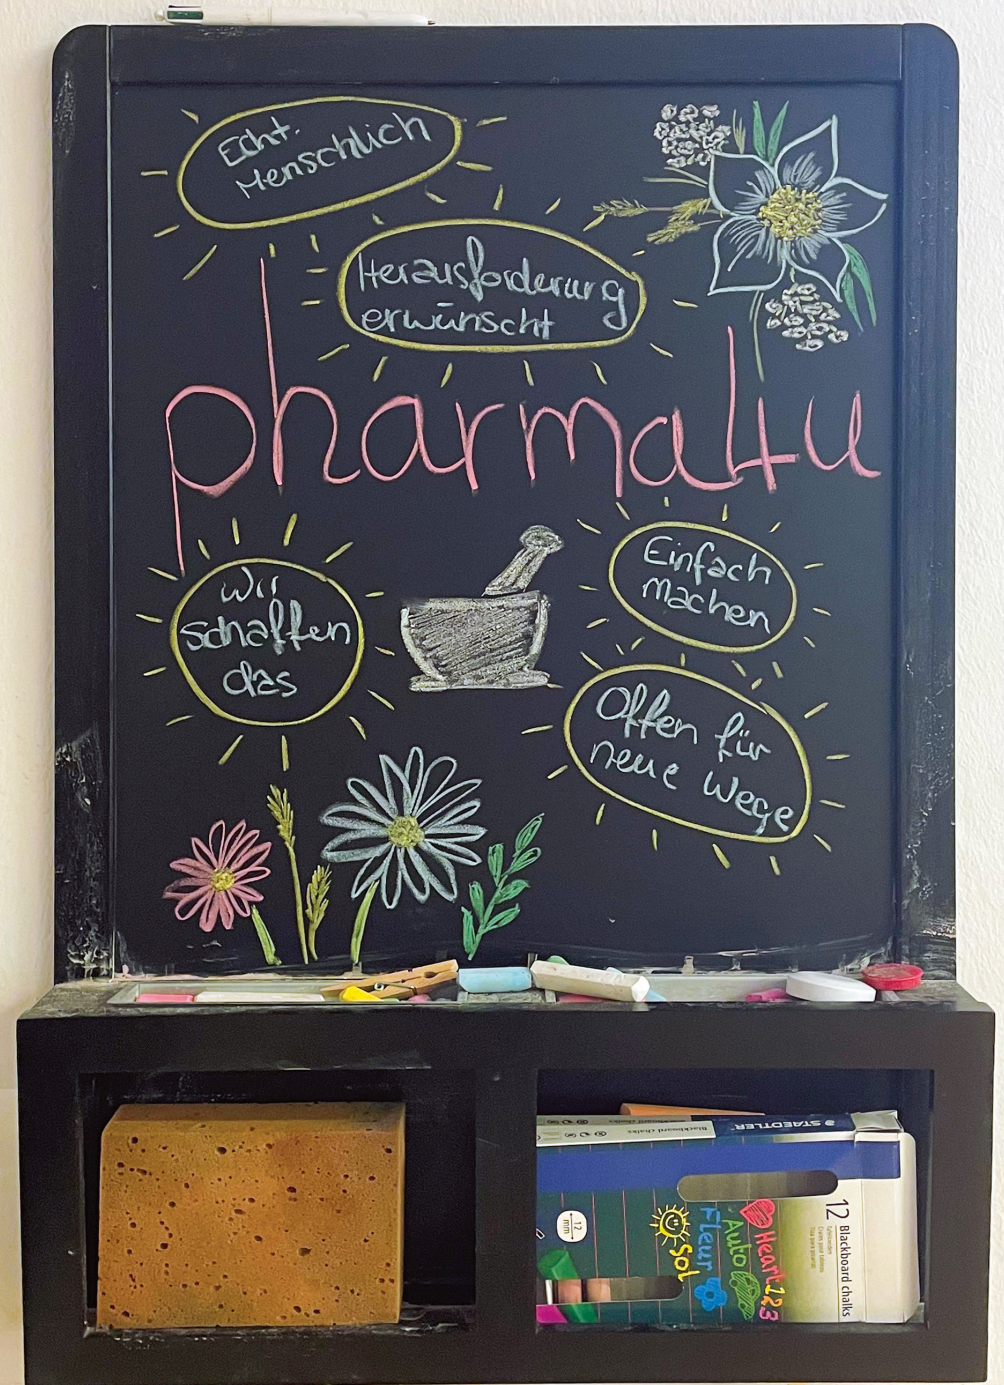 Echt.
Menschlich
Herausforderung
erwünscht
pharma4u
Wir
schaffen
das
Einfach
machen
Offen für
neue Wege
STAEDTLER
Blackboard chalks
12 Blackboard chalks
12
mm
Heart 123
Auto
Fleur
Sol